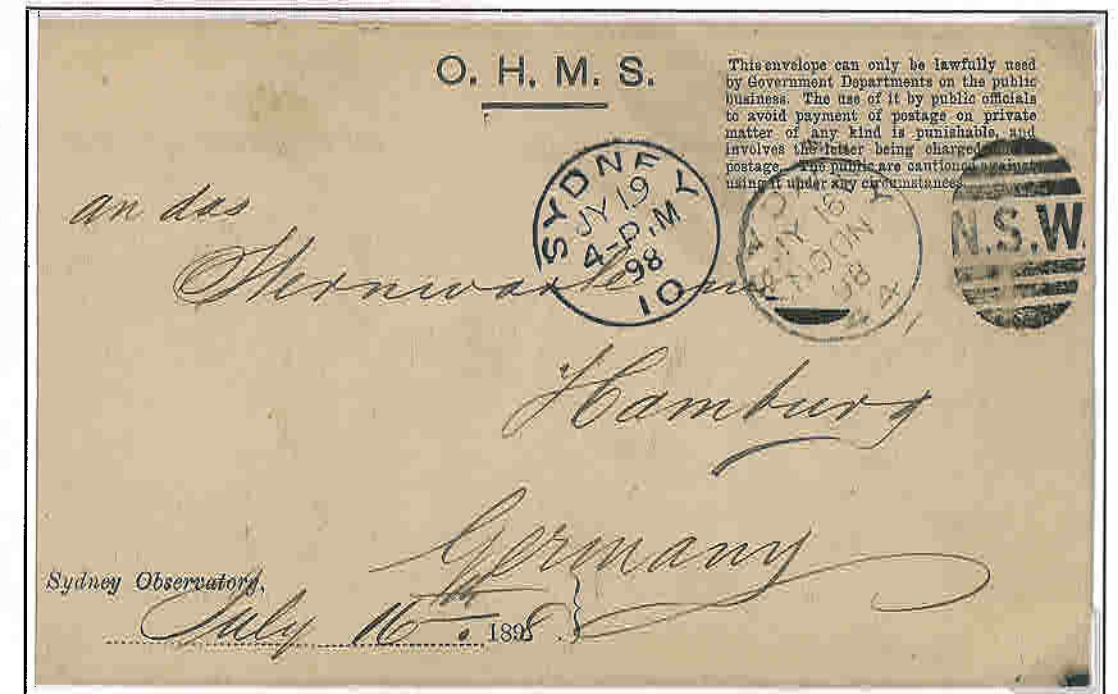 O. H. M. S.
This envelope can only be lawfully used
by Government Departments on the public
business. The use of it by public officials
to avoid payment of postage on private
matter of any kind is punishable, and
involves the letter being charged
postage. The public are cautioned against
using it under any circumstances.
SYDNEY
JY 19
4-P.M
98
10
JY 16
NOON
98
4
N.S.W.
an das
Sternwarte
Hamburg
Germany
Sydney Observatory,
July 16th 1898.